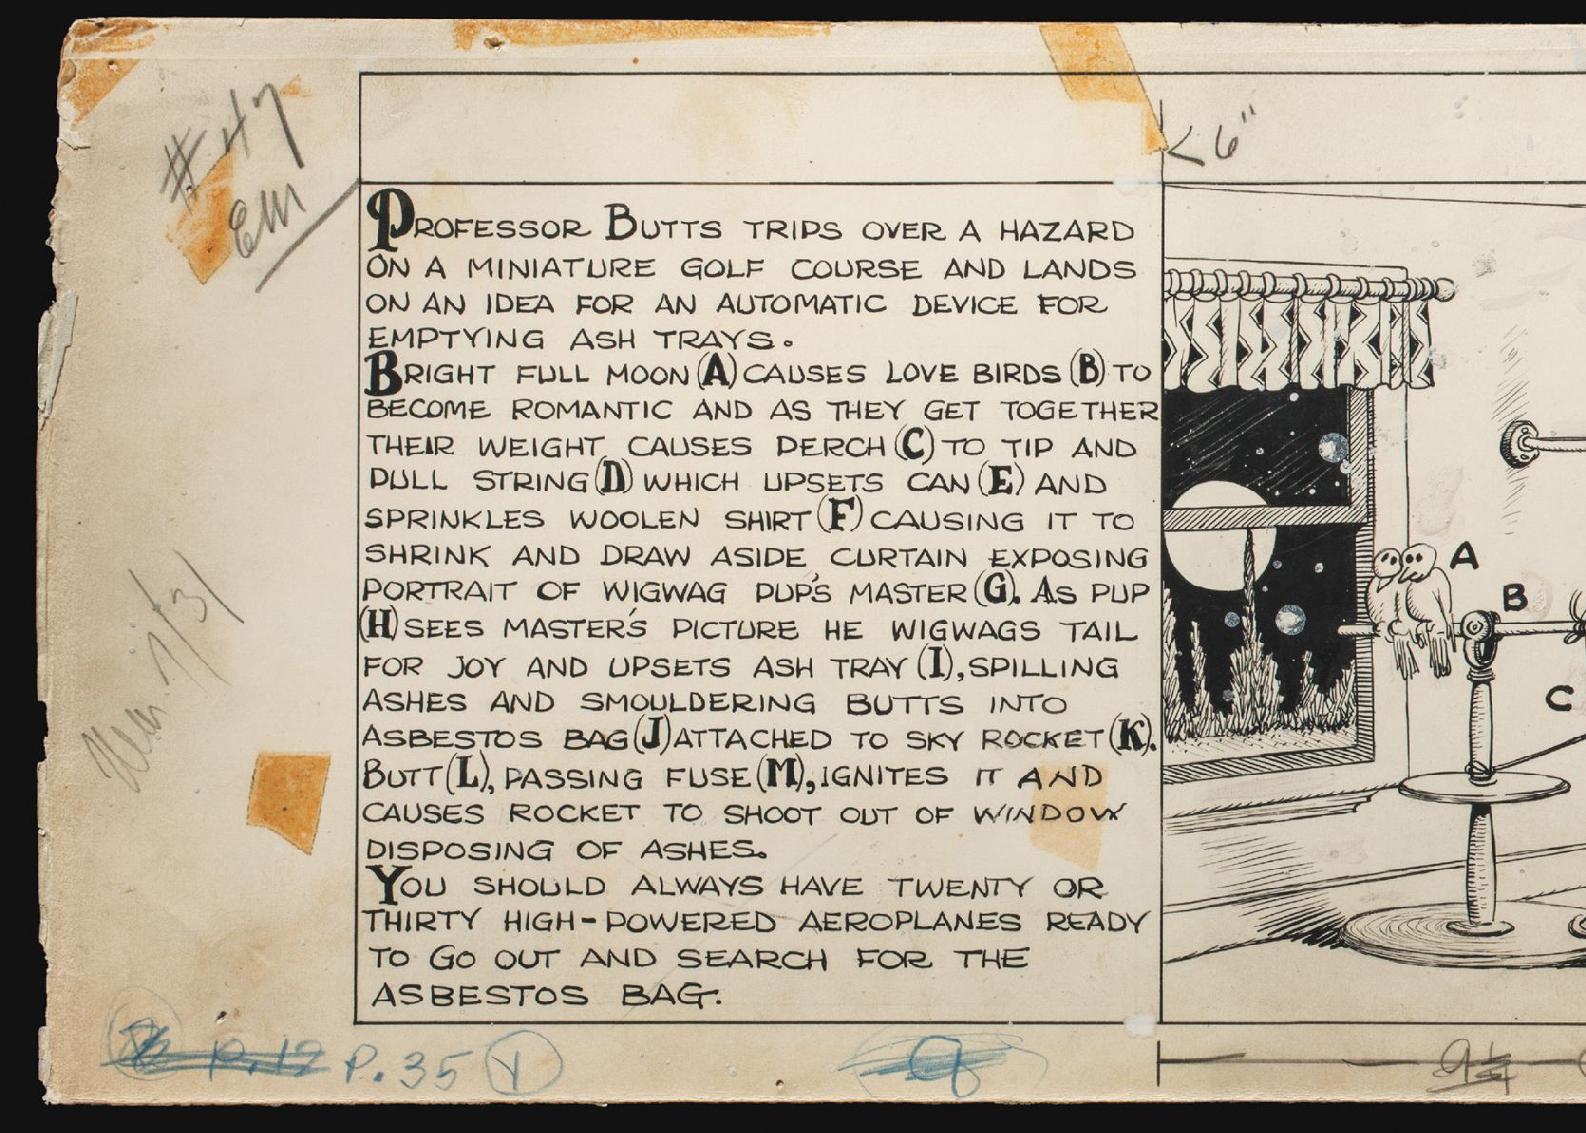 #47
Elm
<6"
PROFESSOR BUTTS TRIPS OVER A HAZARD
ON A MINIATURE GOLF COURSE AND LANDS
ON AN IDEA FOR AN AUTOMATIC DEVICE FOR
EMPTYING ASH TRAYS.
BRIGHT FULL MOON (A) CAUSES LOVE BIRDS (B) TO
BECOME ROMANTIC AND AS THEY GET TOGETHER
THEIR WEIGHT CAUSES PERCH (C) TO TIP AND
PULL STRING (D) WHICH UPSETS CAN (E) AND
SPRINKLES WOOLEN SHIRT (F) CAUSING IT TO
SHRINK AND DRAW ASIDE CURTAIN EXPOSING
PORTRAIT OF WIGWAG PUP'S MASTER (G). AS PUP
(H) SEES MASTER'S PICTURE HE WIGWAGS TAIL
FOR JOY AND UPSETS ASH TRAY (I), SPILLING
ASHES AND SMOULDERING BUTTS INTO
ASBESTOS BAG (J) ATTACHED TO SKY ROCKET (K).
BUTT (L), PASSING FUSE (M), IGNITES IT AND
CAUSES ROCKET TO SHOOT OUT OF WINDOW
DISPOSING OF ASHES.
YOU SHOULD ALWAYS HAVE TWENTY OR
THIRTY HIGH-POWERED AEROPLANES READY
TO GO OUT AND SEARCH FOR THE
ASBESTOS BAG.
A
B
C
P. 35 Y